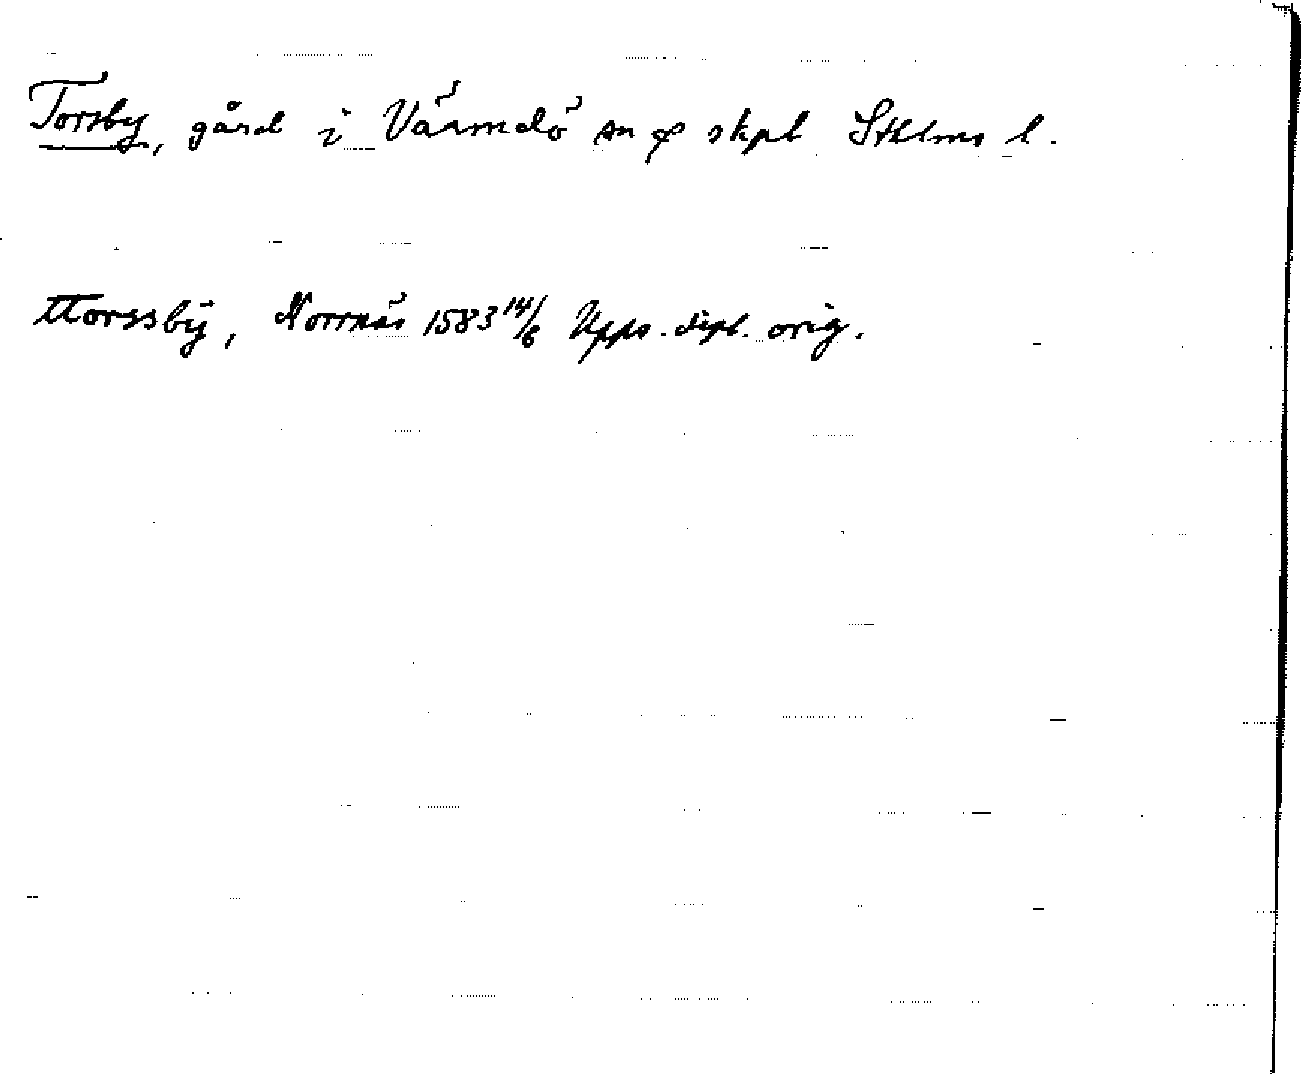 Torsby, gård i Värmdö sn o skpl Sthlms l.
ttorssbÿ, Norrnäs 1583 14/6 Upps. dipl. orig.